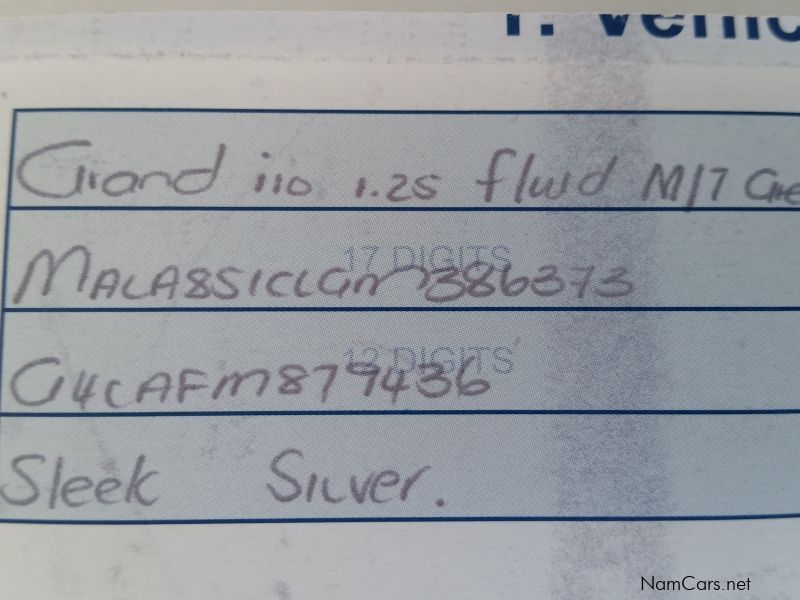 1. Vehic
Grand i10 1.25 fluid M/T Gre
17 DIGITS
MALA851CLGM386373
12 DIGITS
G4LAFM879436
Sleek Silver.
NamCars.net